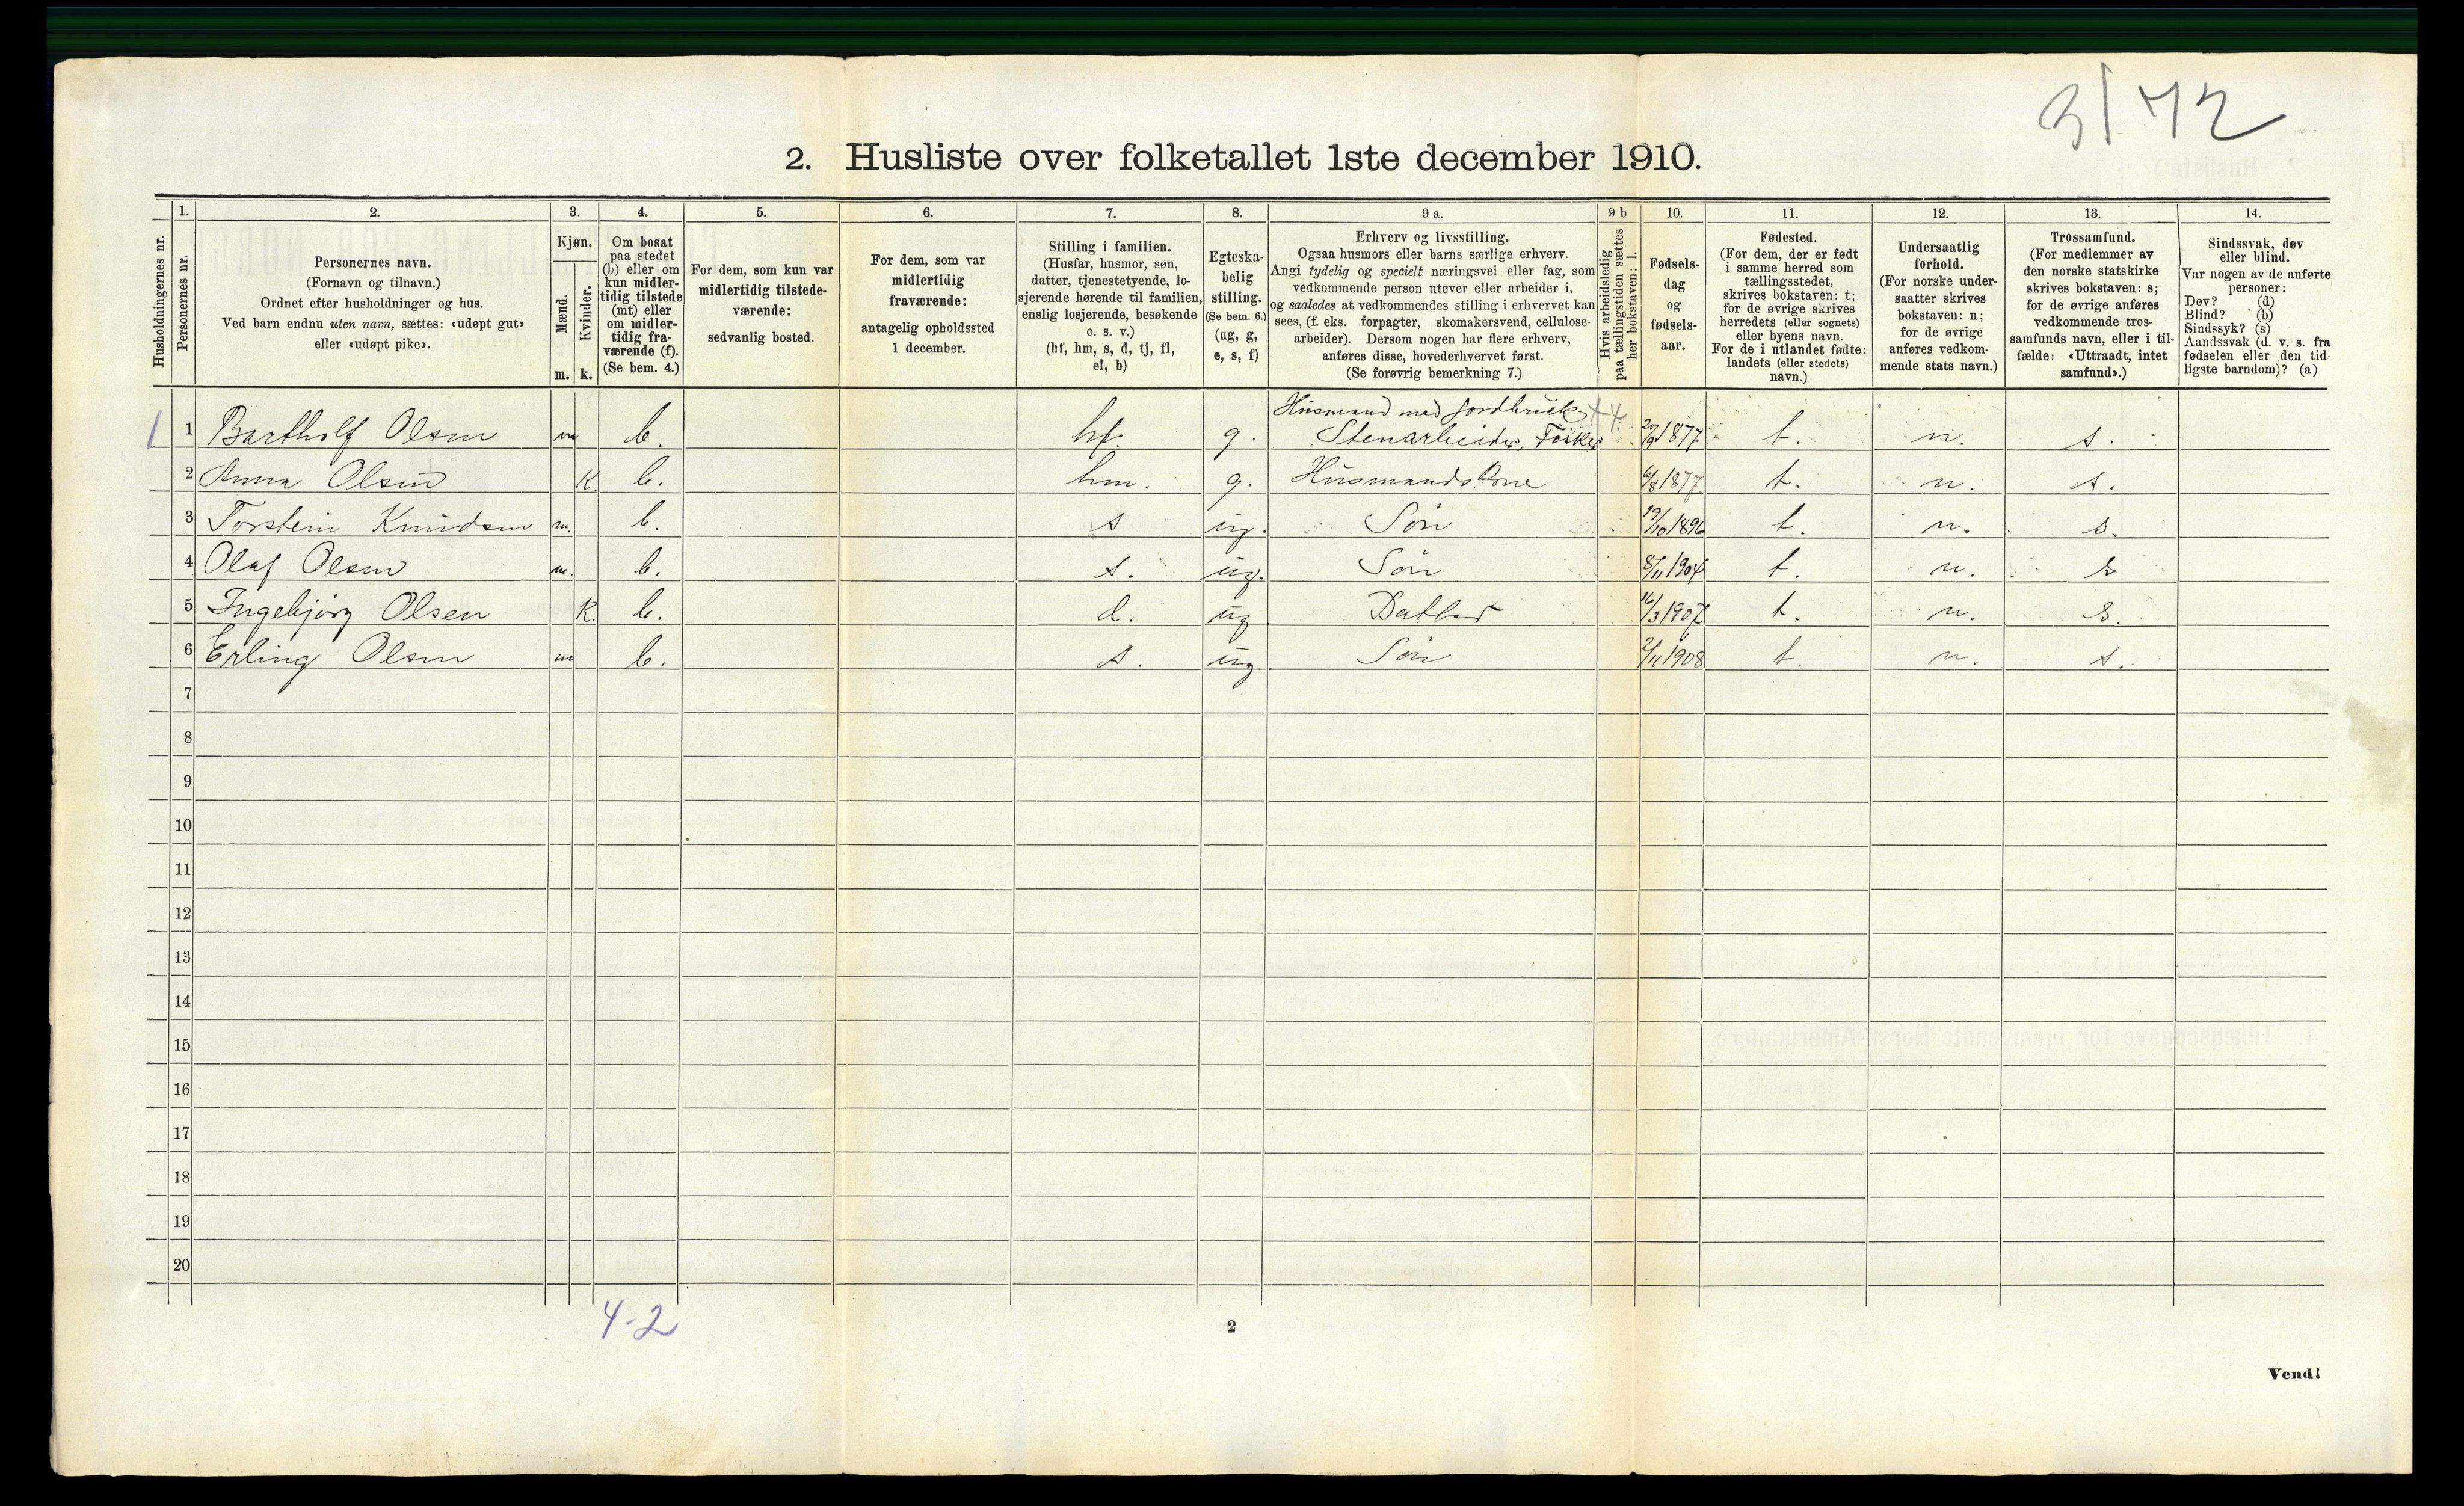 3/42
2. Husliste over folketallet 1ste december 1910.
Husholdningernes nr.
1.
Personernes nr.
2.
Personernes navn.
(Fornavn og tilnavn.)
Ordnet efter husholdninger og hus.
Ved barn endnu uten navn, sættes: «udøpt gut»
eller «udøpt pike».
3.
Kjøn.
Mænd.
Kvinder.
m. k.
4.
Om bosat
paa stedet
(b) eller om
kun midler-
tidig tilstede
(mt) eller
om midler-
tidig fra-
værende (f).
(Se bem. 4.)
5.
For dem, som kun var
midlertidig tilstede-
værende:
sedvanlig bosted.
6.
For dem, som var
midlertidig
fraværende:
antagelig opholdssted
1 december.
7.
Stilling i familien.
(Husfar, husmor, søn,
datter, tjenestetyende, lo-
sjerende hørende til familien,
enslig losjerende, besøkende
o. s. v.)
(hf, hm, s, d, tj, fl,
el, b)
8.
Egteska-
belig
stilling.
(Se bem. 6.)
(ug, g,
e, s, f)
9 a.
Erhverv og livsstilling.
Ogsaa husmors eller barns særlige erhverv.
Angi tydelig og specielt næringsvei eller fag, som
vedkommende person utøver eller arbeider i,
og saaledes at vedkommendes stilling i erhvervet kan
sees, (f. eks. forpagter, skomakersvend, cellulose-
arbeider). Dersom nogen har flere erhverv,
anføres disse, hovederhvervet først.
(Se forøvrig bemerkning 7.)
9 b
Hvis arbeidsledig
paa tællingstiden sættes
her bokstaven: l.
10.
Fødsels-
dag
og
fødsels-
aar.
11.
Fødested.
(For dem, der er født
i samme herred som
tællingsstedet,
skrives bokstaven: t;
for de øvrige skrives
herredets (eller sognets)
eller byens navn.
For de i utlandet fødte:
landets (eller stedets)
navn.)
12.
Undersaatlig
forhold.
(For norske under-
saatter skrives
bokstaven: n;
for de øvrige
anføres vedkom-
mende stats navn.)
13.
Trossamfund.
(For medlemmer av
den norske statskirke
skrives bokstaven: s;
for de øvrige anføres
vedkommende tros-
samfunds navn, eller i til-
fælde: «Uttraadt, intet
samfund».)
14.
Sindssvak, døv
eller blind.
Var nogen av de anførte
personer:
Døv? (d)
Blind? (b)
Sindssyk? (s)
Aandssvak (d. v. s. fra
fødselen eller den tid-
ligste barndom)? (a)
Husmand med jordbruk
1 1 Bartholf Olsen m b. hf. g. Stenarbeider, Fisker 1877 t. n. s.
2 Anna Olsen K. b. hm. g. Husmandskone 6/8 1877 t. n. s.
3 Torstein Knudsen m. b. s ug. Søn 19/10 1896 t. n. s.
4 Olaf Olsen m. b. s. ug. Søn 8/11 1904 t. n. s
5 Ingebjørg Olsen K. b. d. ug Datter 16/3 1907 t. n. s.
6 Erling Olsen m b. s. ug Søn 2/11 1908 t. n. s.
7
8
9
10
11
12
13
14
15
16
17
18
19
20
4-2
2
Vend!